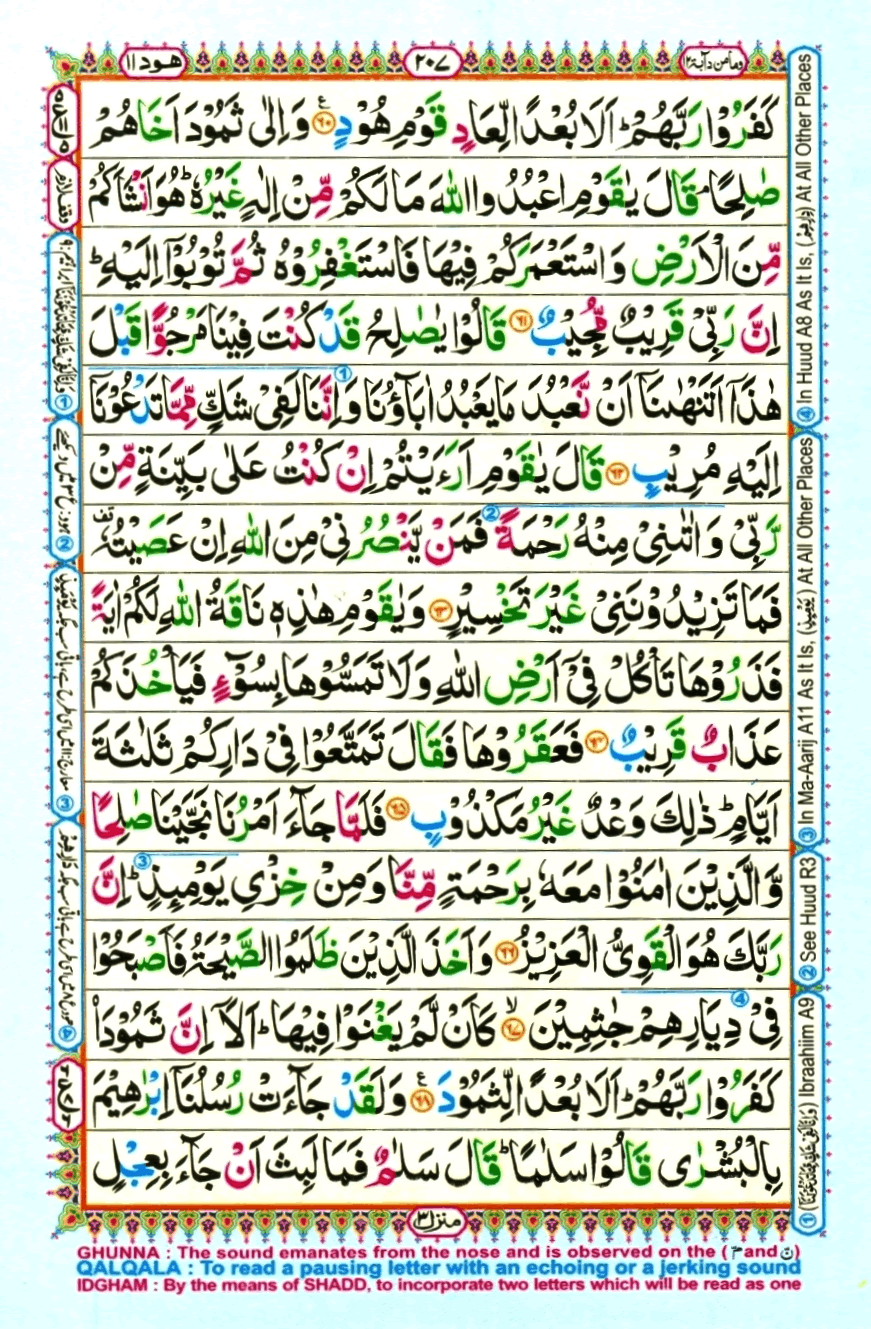 ومامن دآبة ١٢
٢٠٧
هود ١١
كَفَرُوْا رَبَّهُمْ ؕ اَلَا بُعْدًا لِّعَادٍ قَوْمِ هُوْدٍ ﴿۶۰﴾ وَ اِلٰى ثَمُوْدَ اَخَاهُمْ
صٰلِحًا ۘ قَالَ يٰقَوْمِ اعْبُدُوا اللّٰهَ مَا لَكُمْ مِّنْ اِلٰهٍ غَيْرُهٗ ؕ هُوَ اَنْشَاَكُمْ
مِّنَ الْاَرْضِ وَ اسْتَعْمَرَكُمْ فِيْهَا فَاسْتَغْفِرُوْهُ ثُمَّ تُوْبُوْۤا اِلَيْهِ ؕ
اِنَّ رَبِّيْ قَرِيْبٌ مُّجِيْبٌ ﴿۶۱﴾ قَالُوْا يٰصٰلِحُ قَدْ كُنْتَ فِيْنَا مَرْجُوًّا قَبْلَ
هٰذَاۤ اَتَنْهٰىنَاۤ اَنْ نَّعْبُدَ مَا يَعْبُدُ اٰبَآؤُنَا وَ اِنَّنَا لَفِيْ شَكٍّ مِّمَّا تَدْعُوْنَاۤ
اِلَيْهِ مُرِيْبٍ ﴿۶۲﴾ قَالَ يٰقَوْمِ اَرَءَيْتُمْ اِنْ كُنْتُ عَلٰى بَيِّنَةٍ مِّنْ
رَّبِّيْ وَ اٰتٰىنِيْ مِنْهُ رَحْمَةً فَمَنْ يَّنْصُرُنِيْ مِنَ اللّٰهِ اِنْ عَصَيْتُهٗ ۫
فَمَا تَزِيْدُوْنَنِيْ غَيْرَ تَخْسِيْرٍ ﴿۶۳﴾ وَ يٰقَوْمِ هٰذِهٖ نَاقَةُ اللّٰهِ لَكُمْ اٰيَةً
فَذَرُوْهَا تَاْكُلْ فِيْۤ اَرْضِ اللّٰهِ وَ لَا تَمَسُّوْهَا بِسُوْٓءٍ فَيَاْخُذَكُمْ
عَذَابٌ قَرِيْبٌ ﴿۶۴﴾ فَعَقَرُوْهَا فَقَالَ تَمَتَّعُوْا فِيْ دَارِكُمْ ثَلٰثَةَ
اَيَّامٍ ؕ ذٰلِكَ وَعْدٌ غَيْرُ مَكْذُوْبٍ ﴿۶۵﴾ فَلَمَّا جَآءَ اَمْرُنَا نَجَّيْنَا صٰلِحًا
وَّ الَّذِيْنَ اٰمَنُوْا مَعَهٗ بِرَحْمَةٍ مِّنَّا وَ مِنْ خِزْيِ يَوْمِئِذٍ ؕ اِنَّ
رَبَّكَ هُوَ الْقَوِيُّ الْعَزِيْزُ ﴿۶۶﴾ وَ اَخَذَ الَّذِيْنَ ظَلَمُوا الصَّيْحَةُ فَاَصْبَحُوْا
فِيْ دِيَارِهِمْ جٰثِمِيْنَ ۙ ﴿۶۷﴾ كَاَنْ لَّمْ يَغْنَوْا فِيْهَا ؕ اَلَاۤ اِنَّ ثَمُوْدَا۠
كَفَرُوْا رَبَّهُمْ ؕ اَلَا بُعْدًا لِّثَمُوْدَ ﴿۶۸﴾ وَ لَقَدْ جَآءَتْ رُسُلُنَاۤ اِبْرٰهِيْمَ
بِالْبُشْرٰى قَالُوْا سَلٰمًا ؕ قَالَ سَلٰمٌ فَمَا لَبِثَ اَنْ جَآءَ بِعِجْلٍ
منزل ٣
① Ibraahiim A9
② See Huud R3
③ In Ma-Aarij A11 As It Is, (يَوْمَئِذٍ) At All Other Places
④ In Huud A8 As It Is, At All Other Places
وقف لازم
GHUNNA : The sound emanates from the nose and is observed on the ( م and ن)
QALQALA : To read a pausing letter with an echoing or a jerking sound
IDGHAM : By the means of SHADD, to incorporate two letters which will be read as one